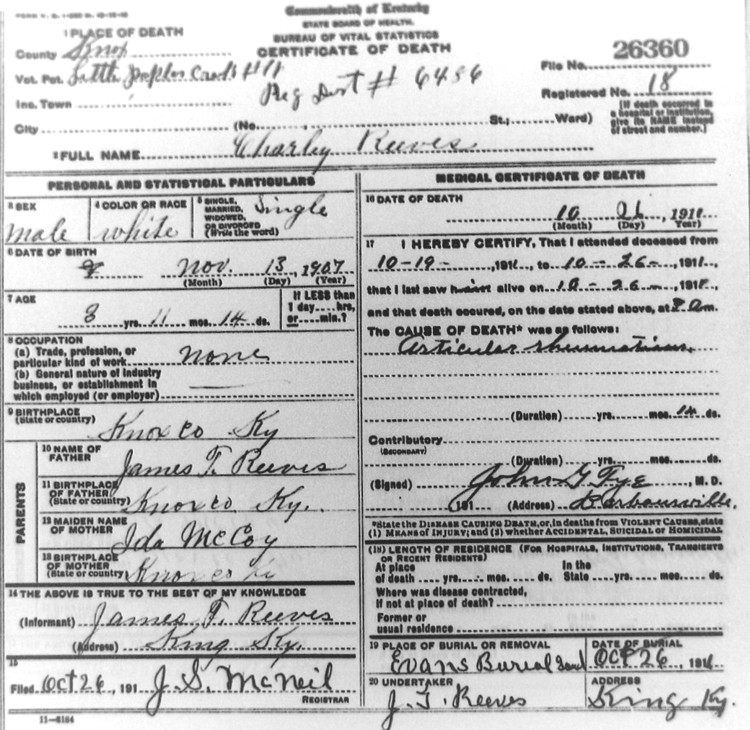 Commonwealth of Kentucky
STATE BOARD OF HEALTH.
BUREAU OF VITAL STATISTICS
CERTIFICATE OF DEATH
1 PLACE OF DEATH
County Knox
Vot. Pct.
Reg Dist # 6486
File No. 26360
Inc. Town
Registered No. 18
[If death occurred in a hospital or institution, give its NAME instead of street and number.]
City (No. , St.; Ward)
2 FULL NAME Charley Reeves
PERSONAL AND STATISTICAL PARTICULARS
3 SEX
male
4 COLOR OR RACE
white
5 SINGLE, MARRIED, WIDOWED, OR DIVORCED (Write the word)
Single
6 DATE OF BIRTH
Nov. 13, 1907
(Month) (Day) (Year)
7 AGE
8 yrs. 11 mos. 14 ds.
If LESS than 1 day....hrs, or....min.?
8 OCCUPATION
(a) Trade, profession, or
particular kind of work none
(b) General nature of industry
business, or establishment in
which employed (or employer)
9 BIRTHPLACE
(State or country)
Knox co Ky
PARENTS
10 NAME OF
FATHER
James T. Reeves
11 BIRTHPLACE
OF FATHER
(State or country)
Knox co Ky.
12 MAIDEN NAME
OF MOTHER
Ida McCoy
13 BIRTHPLACE
OF MOTHER
(State or country)
Knox co
14 THE ABOVE IS TRUE TO THE BEST OF MY KNOWLEDGE
(Informant) James T. Reeves
(Address) King Ky.
15
Filed Oct 26, 191 J. S. McNeil
REGISTRAR
11-8184
MEDICAL CERTIFICATE OF DEATH
16 DATE OF DEATH
10
(Month) (Day) (Year)
17 I HEREBY CERTIFY, That I attended deceased from
10-19- , to 10-26-
that I last saw alive on 10-26-
and that death occured, on the date stated above, at
The CAUSE OF DEATH* was as follows:
Articular rheumatism
(Duration) yrs. mos. 14 ds.
Contributory
(SECONDARY)
(Duration) yrs. mos. ds.
(Signed) John G Tye M. D.
(191 (Address) Barbourville,
*State the DISEASE CAUSING DEATH, or, in deaths from VIOLENT CAUSES, state
(1) MEANS OF INJURY; and (2) whether ACCIDENTAL, SUICIDAL or HOMICIDAL
(18) LENGTH OF RESIDENCE (FOR HOSPITALS, INSTITUTIONS, TRANSIENTS
OR RECENT RESIDENTS)
At place In the
of death yrs. mos. ds. State yrs. mos. ds.
Where was disease contracted,
If not at place of death?
Former or
usual residence
19 PLACE OF BURIAL OR REMOVAL
Evans Burial
DATE OF BURIAL
Oct 26, 191
20 UNDERTAKER
J. T. Reeves
ADDRESS
King Ky.